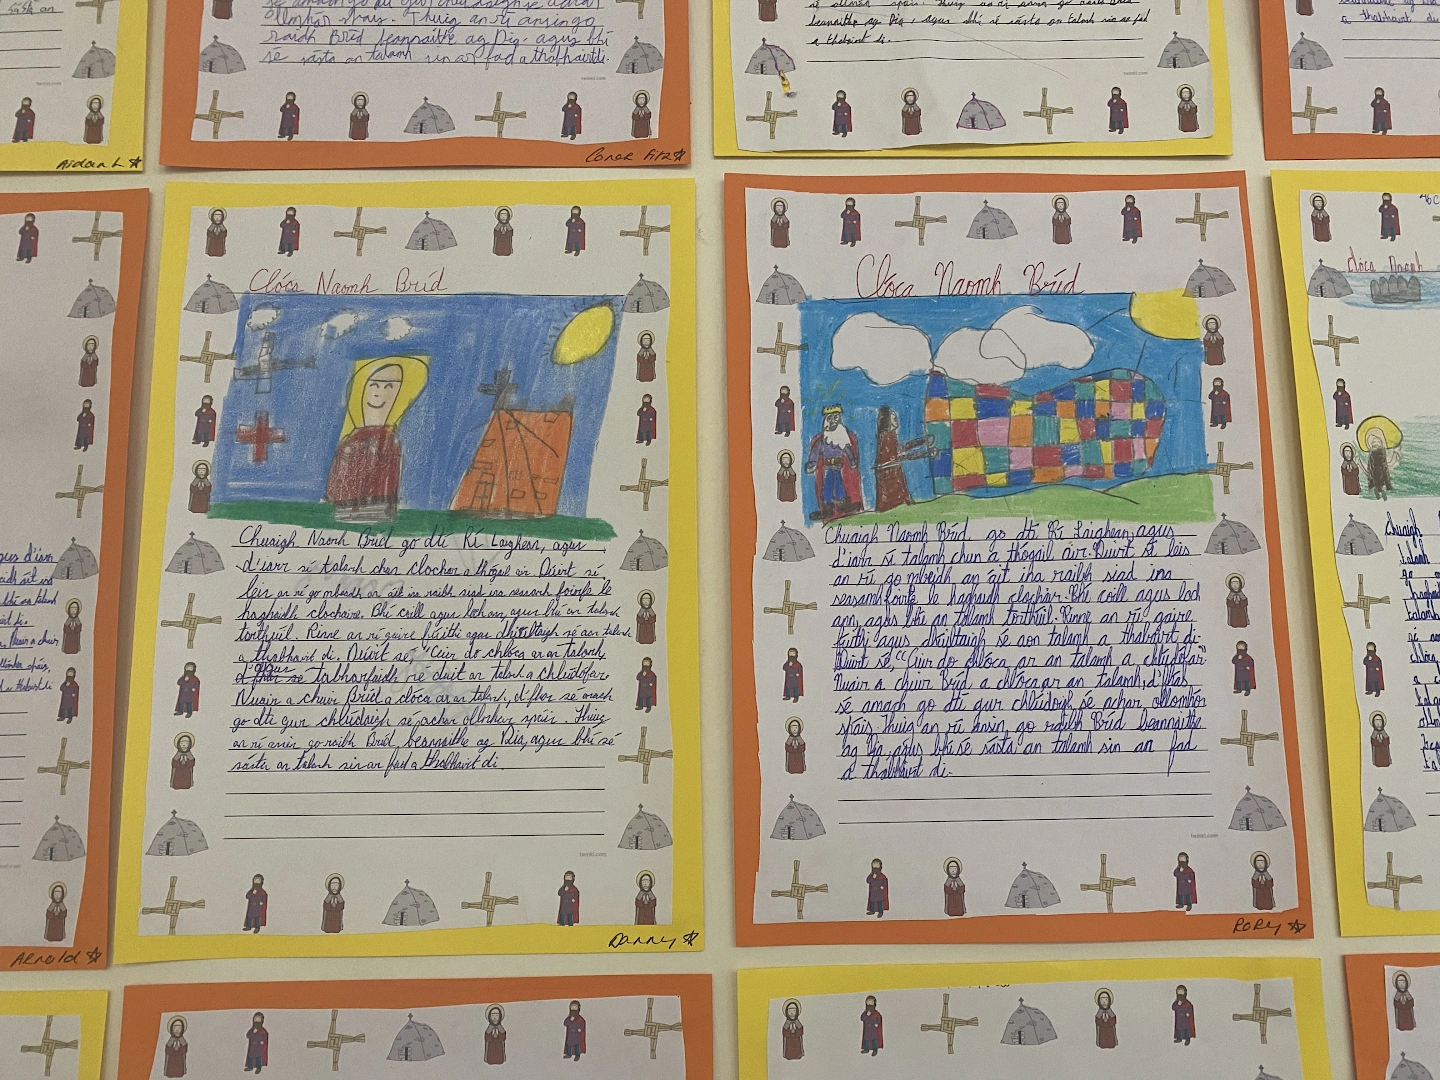 sásta an
Aidan L
ollmhór spáis. Thuig an rí ansin go
raibh Bríd beannaithe ag Dia. agus bhí
sé sásta an talamh sin ar fad a thabhairt di.
twinkl.com
Conor Fitz
beannaithe ag Dia, agus bhí sé sásta an talamh sin ar fad
a thabhairt di.
twinkl.com
a thabhairt di
Arnold
Clóca Naomh Bríd
Chuaigh Naomh Bríd go dtí Rí Laighean, agus
d'iarr sí talamh chun clochar a thógáil air. Dúirt sí
leis an rí go mbeadh an áit ina raibh siad ina seasamh foirfe le
haghaidh clochair. Bhí coill agus loch ann, agus bhí an talamh
torthúil. Rinne an rí gáire fúithi agus dhiúltaigh sé aon talamh
a thabhairt di. Dúirt sé, "Cuir do chlóca ar an talamh
tabharfaidh mé duit an talamh a chlúdófar
Nuair a chuir Bríd a clóca ar an talamh, d'fhás sé amach
go dtí gur chlúdaigh sé achar ollmhór spáis. Thuig
an rí ansin go raibh Bríd beannaithe ag Dia, agus bhí sé
sásta an talamh sin ar fad a thabhairt di
twinkl.com
Danny
Clóca Naomh Bríd
Chuaigh Naomh Bríd go dtí Rí Laighean, agus
d'iarr sí talamh chun a thógáil air. Dúirt sí leis
an rí go mbeidh an áit ina raibh siad ina
seasamh foirfe le haghaidh clochar. Bhí coill agus loch
ann, agus bhí an talamh torthúil. Rinne an rí gaire
fúithi agus dhiúltaigh sé aon talamh a thabhairt di.
Dúirt sé, "Cuir do chlóca ar an talamh a chlúdófar"
Nuair a chuir Bríd a chlóca ar an talamh, d'fhás
sé amach go dtí gur chlúdaigh sé achar, ollmhór
spáis. Thuig an rí ansin go raibh Bríd beannaithe
ag Dia, agus bhí sé sásta an talamh sin an fad
a thabhairt di.
twinkl.com
Rory
Clóca Naomh
Chuaigh